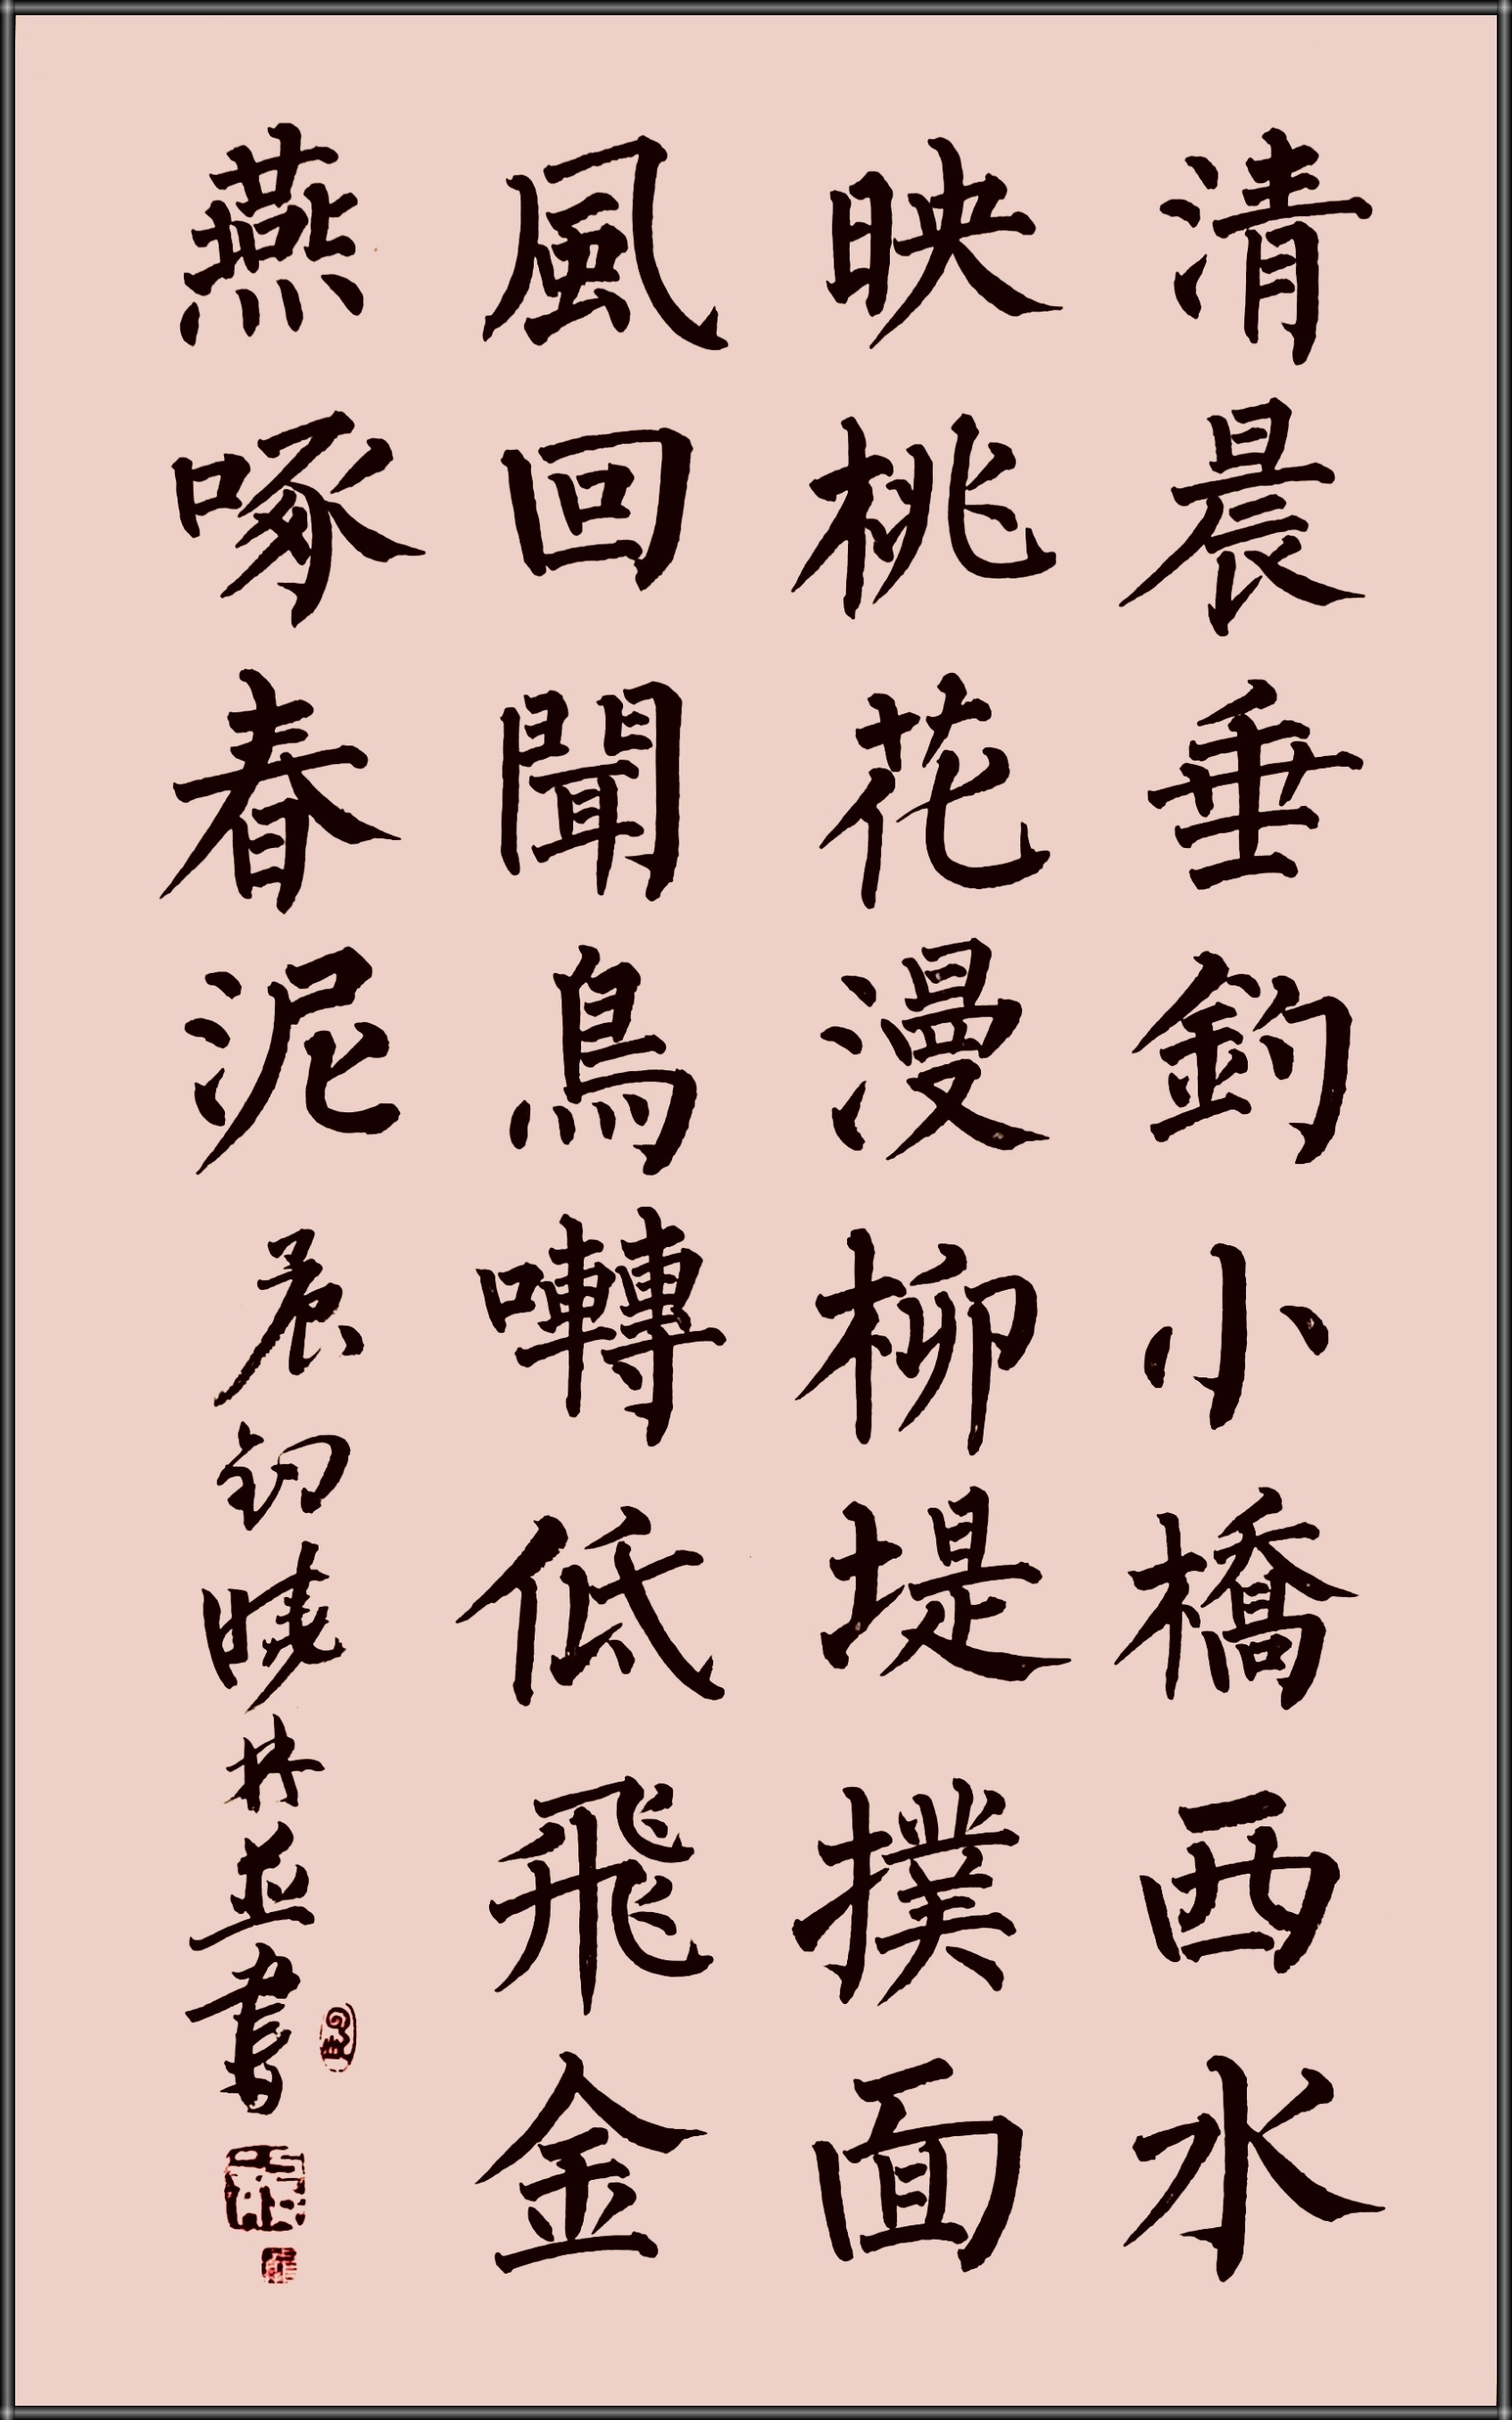 清晨垂釣小橋西水
映桃花漫柳堤撲面
風回聞鳥囀低飛金
燕啄春泥 晨釣 林 書